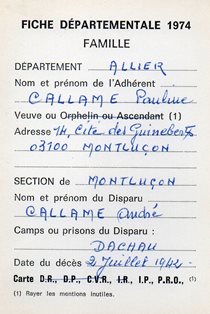 FICHE DÉPARTEMENTALE 1974
FAMILLE
DÉPARTEMENT ALLIER
Nom et prénom de l'Adhérent
CALLAME Pauline
Veuve ou Orphelin ou Ascendant (1)
Adresse 14, Cité des Guineberts
03100 MONTLUÇON
SECTION de MONTLUÇON
Nom et prénom du Disparu
CALLAME André
Camps ou prisons du Disparu :
DACHAU
Date du décès 2 Juillet 1942
Carte D.R., D.P., C.V.R., I.R., I.P., P.R.O., (1)
(1) Rayer les mentions inutiles.